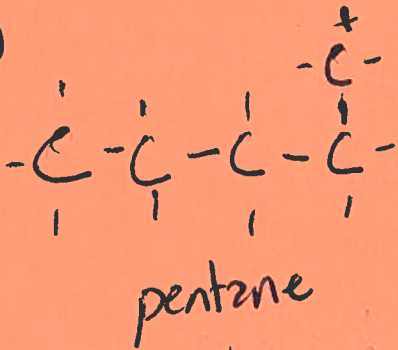 C
C C C C
pentane